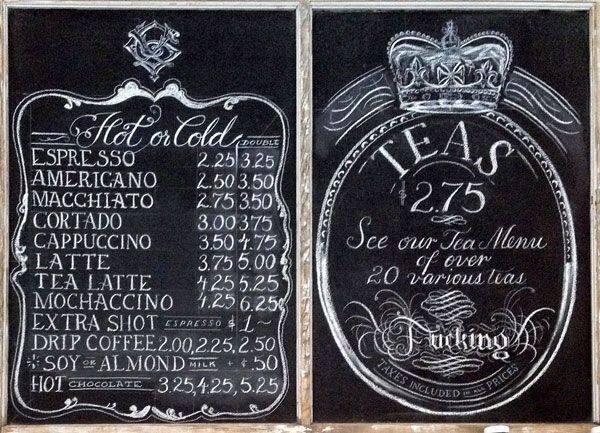 Hot or Cold DOUBLE
ESPRESSO 2.25 3.25
AMERICANO 2.50 3.50
MACCHIATO 2.75 3.50
CORTADO 3.00 3.75
CAPPUCCINO 3.50 4.75
LATTE 3.75 5.00
TEA LATTE 4.25 5.25
MOCHACCINO 4.25 6.25
EXTRA SHOT ESPRESSO $1~
DRIP COFFEE 2.00, 2.25, 2.50
*SOY OR ALMOND MILK + $.50
HOT CHOCOLATE 3.25, 4.25, 5.25
TEAS
$2.75
See our Tea Menu
of over
20 various teas
Fucking
TAXES INCLUDED IN ALL PRICES